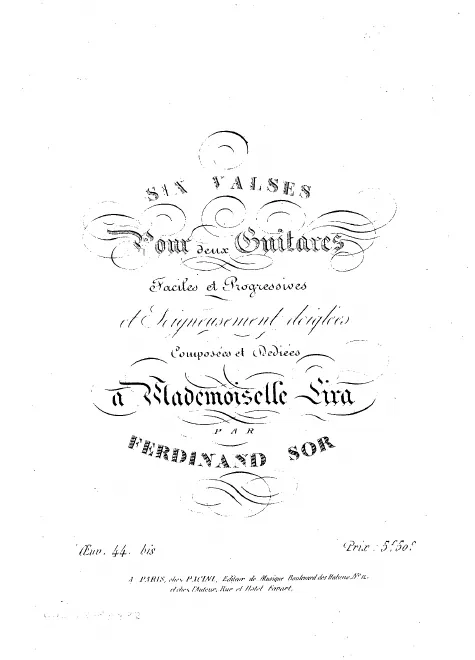 SIX VALSES
Pour deux Guitares
Faciles et Progressives
et Soigneusement doigtées
Composées et Dediées
à Mademoiselle Lira
PAR
FERDINAND SOR
Œuv. 44. bis
Prix: 5f50c
A PARIS, chez PACINI, Editeur de Musique Boulevard des Italiens, No 11.
et chez l'Auteur, Rue et Hôtel Favart.